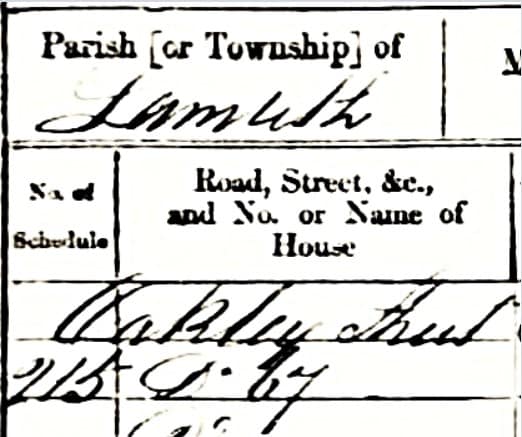 Parish [or Township] of
Lambeth
No. of
Schedule
Road, Street, &c.,
and No. or Name of
House
Oakley Street
215 Do 67